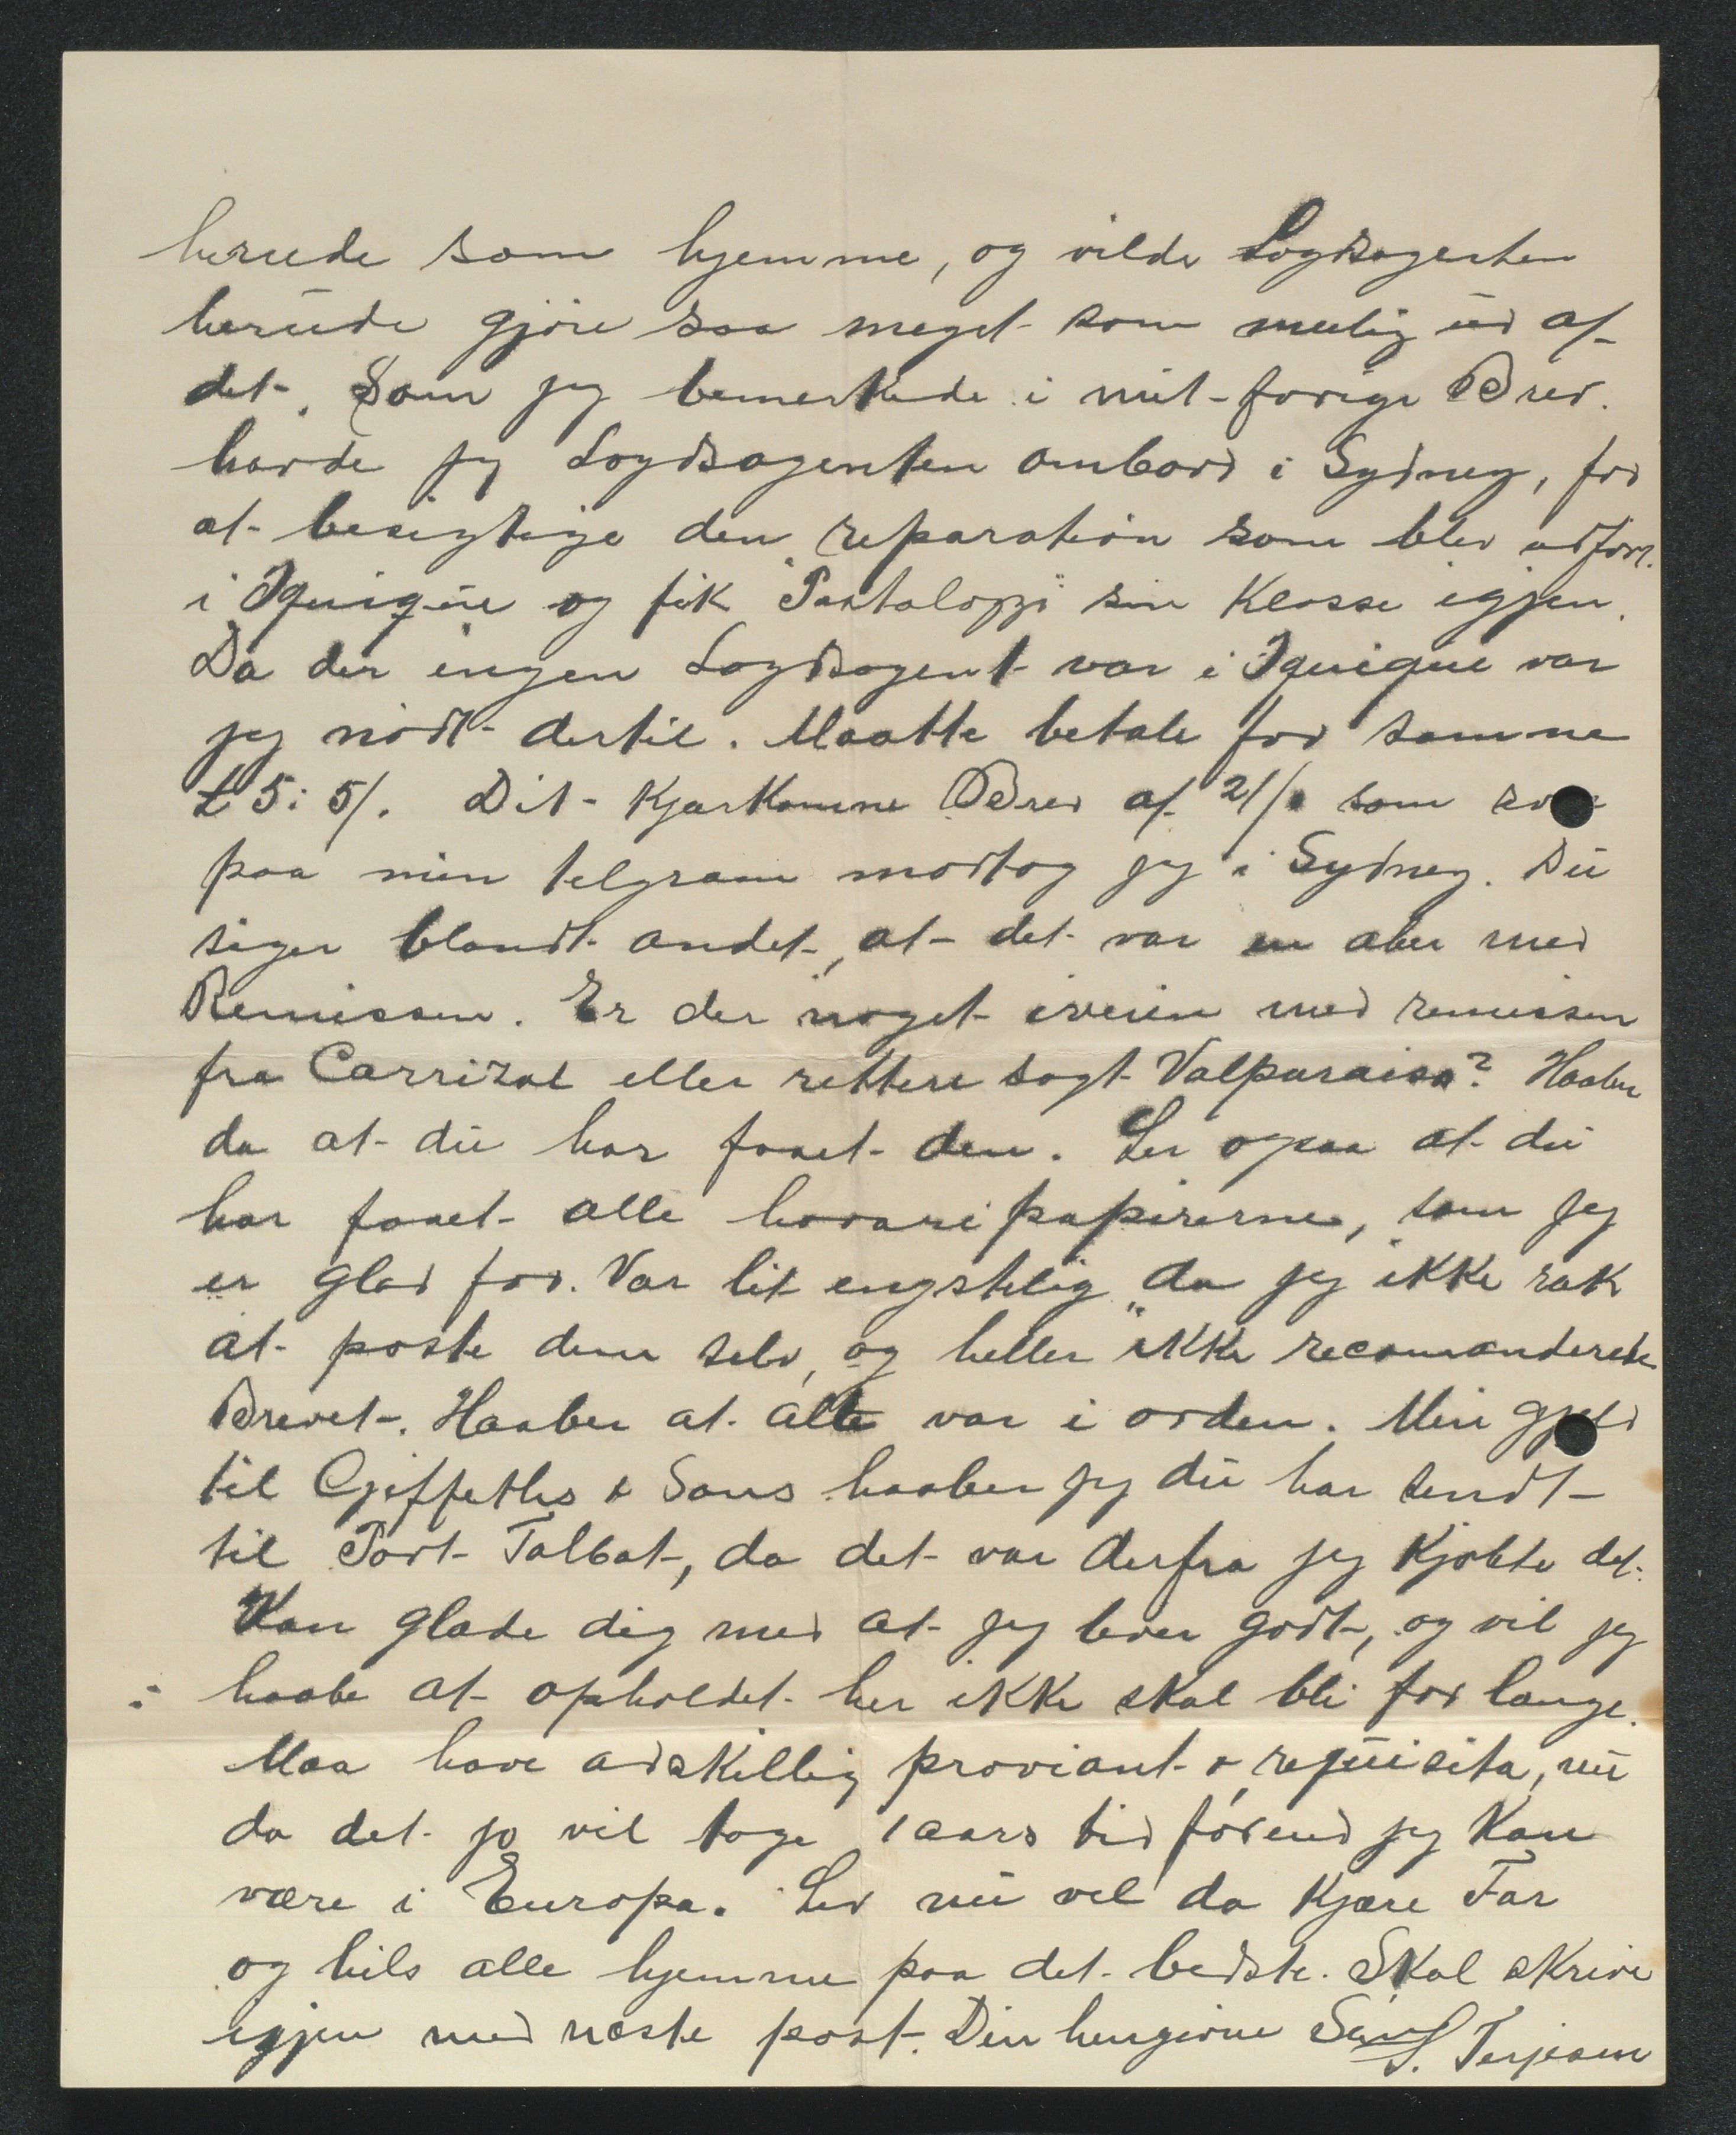 herude som hjemme, og vilde Loydsagenten
herude gjöre saa meget som mulig ud af
det. Som jeg bemerkede i mit forige Brev.
havde jeg Loydsagenten ombord i Sydney, for
at besigtige den reparation som blev udfört.
i Iquique og fik "Pantaloppi" sin Klasse igjen.
Da der ingen Loydsagent var i Iquique var
jeg nödt dertil. Maatte betale for samme
£ 5: 5/. Dit Kjærkomne Brev af 21/ som svar
paa min telgram modtog jeg i Sydney. Du
siger blandt andet, at det var en aber med
Remissen. Er der noget iveien med remissen
fra Carrizal eller rettere sagt Valparaiso? Haaber
da at du har faaet den. Ser ogsaa at du
har faaet alle havaripapirerne, som jeg
er glad for. Var lit engstelig da jeg ikke rak
at poste dem selv, og heller ikke recomanderede
Brevet. Haaber at alt var i orden. Min gjeld
til Griffeths & Sons haaber jeg du har sendt
til Port Talbot, da det var derfra jeg Kjöbte det.
Kan glæde dig med at jeg lever godt, og vil jeg
haabe at opholdet her ikke skal bli for længe.
Maa have adskillig proviant & requisita, nu
da det jo vil tage 1 aars tid förend jeg Kan
være i Europa. Lev nu vel da Kjære Far
og hils alle hjemme paa det bedste. Skal skrive
igjen med næste post. Din hengivne Sön S. Terjesen